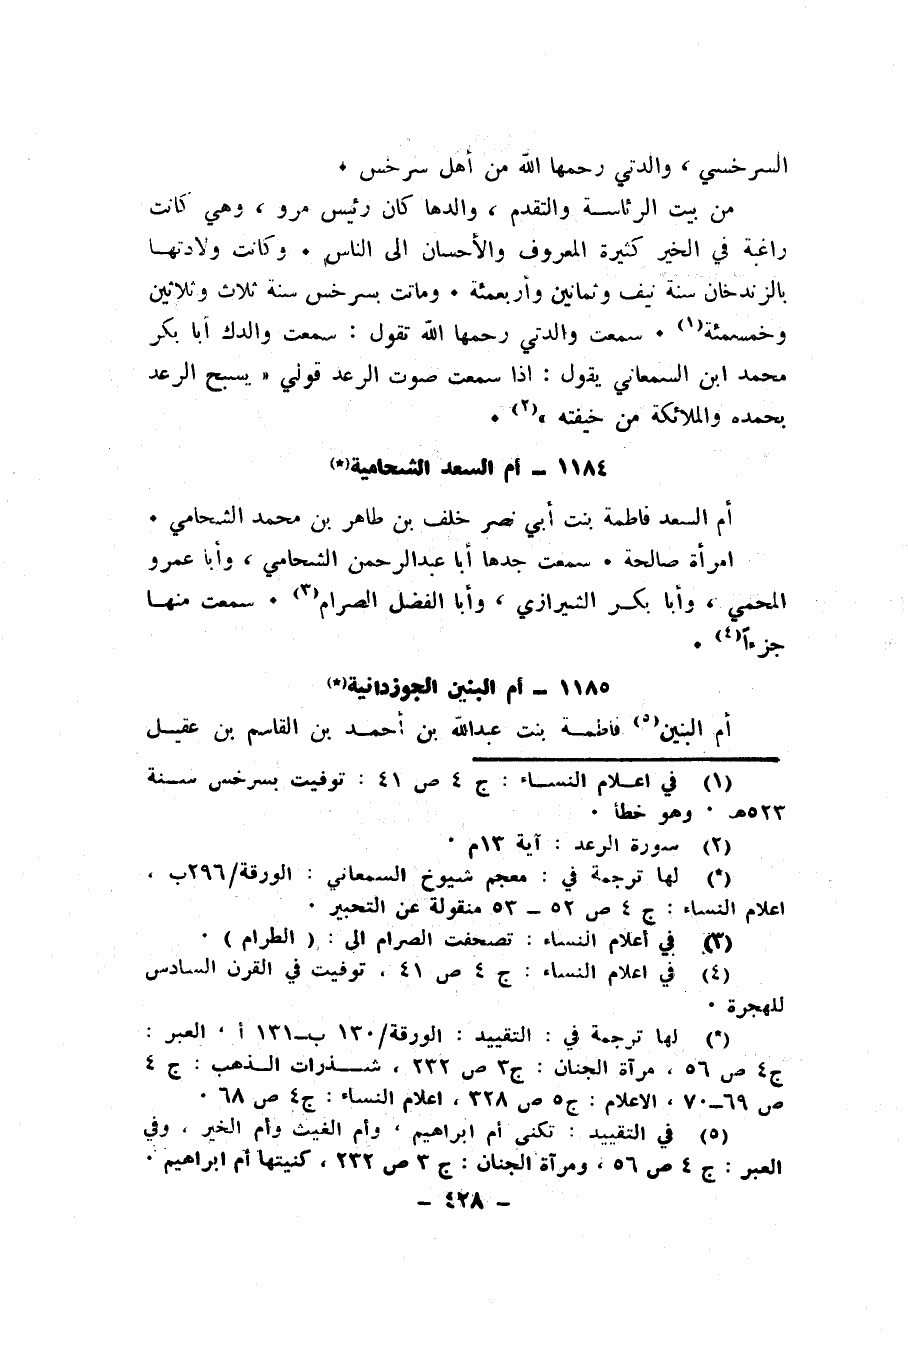 السرخسي ، والدتي رحمها الله من أهل سرخس •
من بيت الرئاسة والتقدم ، والدها كان رئيس مرو ، وهي كانت
راغبة في الخير كثيرة المعروف والأحسان الى الناس • وكانت ولادتها
بالزندخان سنة نيف وثمانين وأربعمئة • وماتت بسرخس سنة ثلاث وثلاثين
وخمسمئة(١) • سمعت والدتي رحمها الله تقول : سمعت والدك أبا بكر
محمد ابن السمعاني يقول : اذا سمعت صوت الرعد قولي « يسبح الرعد
بحمده والملائكة من خيفته »(٢) •
١١٨٤ ــ أم السعد الشحامية(*)
أم السعد فاطمة بنت أبي نصر خلف بن طاهر بن محمد الشحامي •
امرأة صالحة • سمعت جدها أبا عبدالرحمن الشحامي ، وأبا عمرو
المحمي ، وأبا بكر الشيرازي ، وأبا الفضل الصرام(٣) • سمعت منها
جزءاً(٤) •
١١٨٥ ــ أم البنين الجوزدانية(*)
أم البنين(٥) فاطمة بنت عبدالله بن أحمد بن القاسم بن عقيل
(١) في اعلام النساء : ج ٤ ص ٤١ : توفيت بسرخس سنة
٥٢٣هـ • وهو خطأ •
(٢) سورة الرعد : آية ١٣م •
(*) لها ترجمة في : معجم شيوخ السمعاني : الورقة/٢٩٦ب ،
اعلام النساء : ج ٤ ص ٥٢ ــ ٥٣ منقولة عن التحبير •
(٣) في أعلام النساء : تصحفت الصرام الى : ( الطرام ) •
(٤) في اعلام النساء : ج ٤ ص ٤١ ، توفيت في القرن السادس
للهجرة •
(*) لها ترجمة في : التقييد : الورقة/١٣٠ ب-١٣١ أ ، العبر :
ج٤ ص ٥٦ ، مرآة الجنان : ج٣ ص ٢٣٢ ، شذرات الذهب : ج ٤
ص ٦٩-٧٠ ، الاعلام : ج٥ ص ٣٢٨ ، اعلام النساء : ج٤ ص ٦٨ •
(٥) في التقييد : تكنى أم ابراهيم ، وأم الغيث وأم الخير ، وفي
العبر : ج ٤ ص ٥٦ ، ومرآة الجنان : ج ٣ ص ٢٣٢ ، كنيتها أم ابراهيم •
- ٤٢٨ -